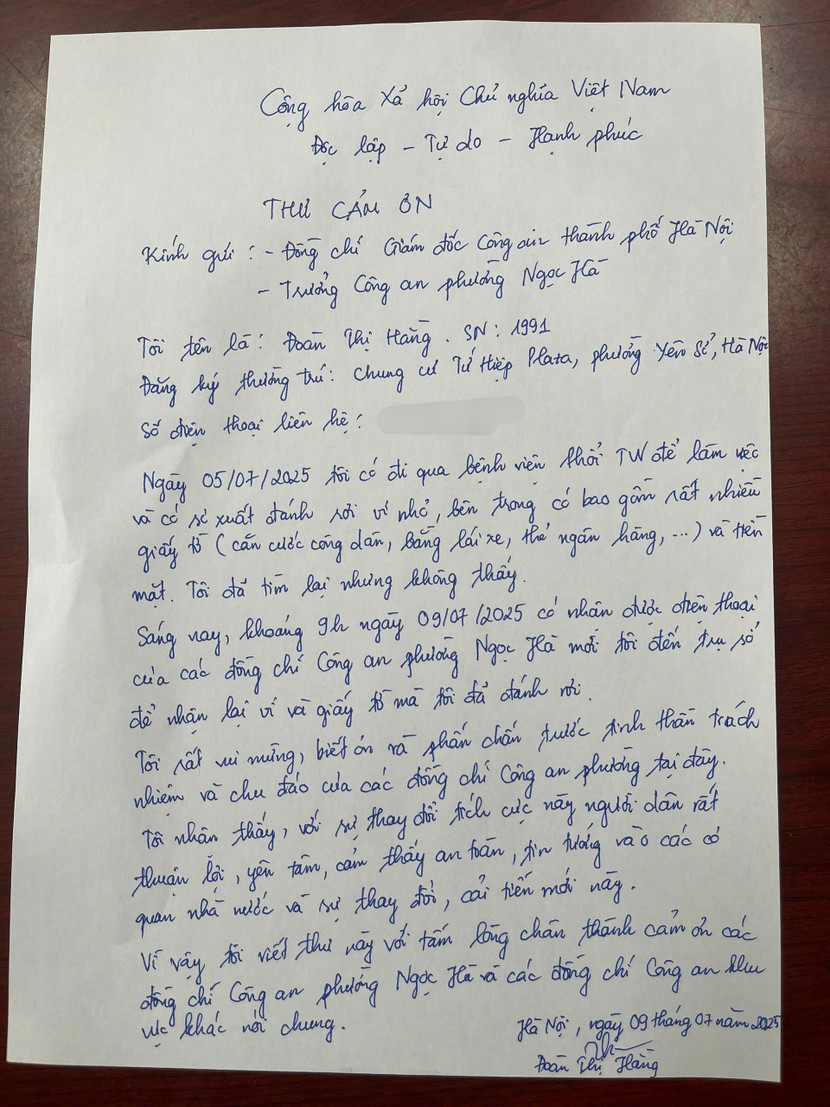 Cộng hòa Xã hội Chủ nghĩa Việt Nam
Độc lập - Tự do - Hạnh phúc
THƯ CẢM ƠN
Kính gửi : - Đồng chí Giám đốc Công an thành phố Hà Nội
- Trưởng Công an phường Ngọc Hà
Tôi tên là : Đoàn Thị Hằng . SN : 1991
Đăng ký thường trú : Chung cư Tứ Hiệp Plaza, phường Yên Sở, Hà Nội
Số điện thoại liên hệ :
Ngày 05/07/2025 tôi có đi qua bệnh viện Phổi TW để làm việc
và có sơ xuất đánh rơi ví nhỏ, bên trong có bao gồm rất nhiều
giấy tờ (căn cước công dân, bằng lái xe, thẻ ngân hàng, ...) và tiền
mặt. Tôi đã tìm lại nhưng không thấy.
Sáng nay, khoảng 9h ngày 09/07/2025 có nhận được điện thoại
của các đồng chí Công an phường Ngọc Hà mời tôi đến trụ sở
để nhận lại ví và giấy tờ mà tôi đã đánh rơi.
Tôi rất vui mừng, biết ơn và phấn chấn trước tinh thần trách
nhiệm và chu đáo của các đồng chí Công an phường tại đây.
Tôi nhận thấy, với sự thay đổi tích cực này người dân rất
thuận lợi, yên tâm, cảm thấy an toàn, tin tưởng vào các cơ
quan nhà nước và sự thay đổi, cải tiến mới này.
Vì vậy tôi viết thư này với tấm lòng chân thành cảm ơn các
đồng chí Công an phường Ngọc Hà và các đồng chí Công an khu
vực khác nói chung.
Hà Nội, ngày 09 tháng 07 năm 2025
Đoàn Thị Hằng